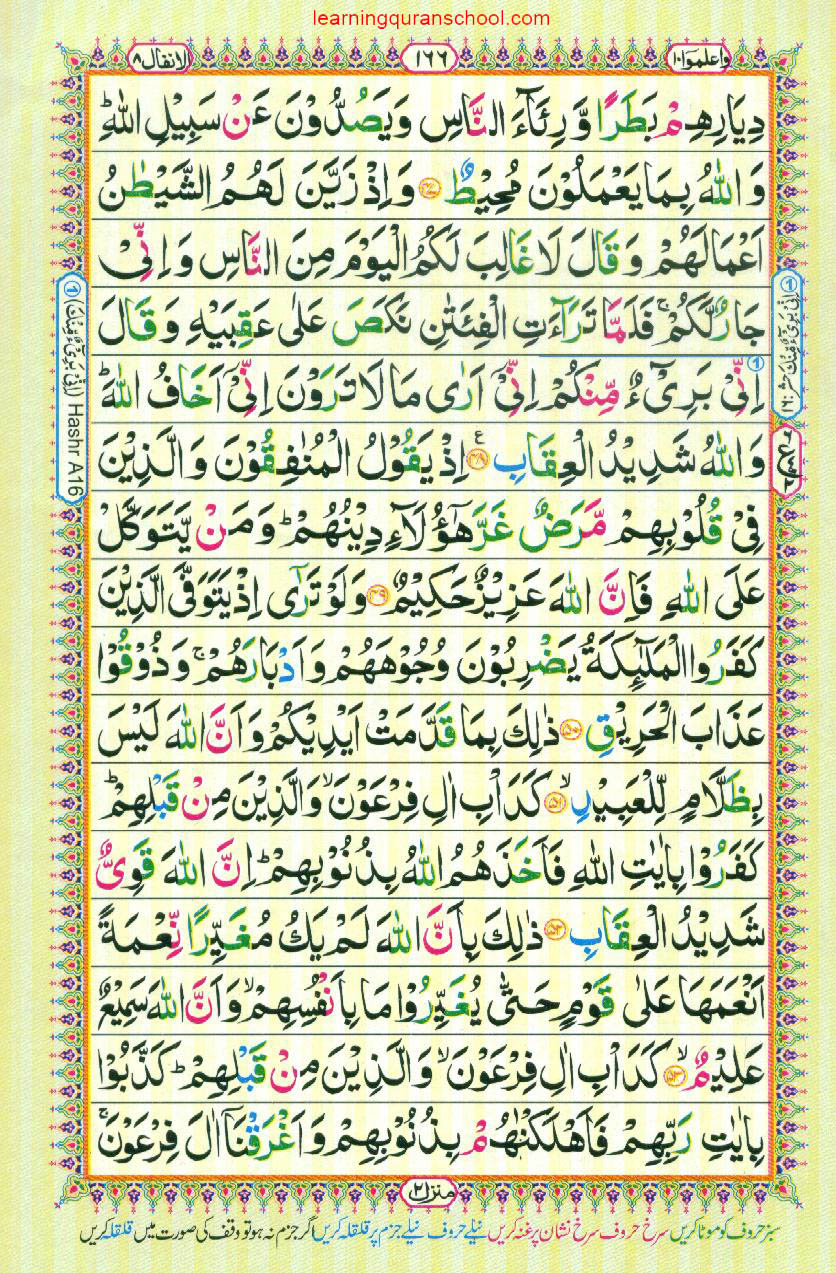 learningquranschool.com
واعلموا ۱۰
۱۶۶
الانفال ۸
دِيَارِهِمْ بَطَرًا وَّ رِئَآءَ النَّاسِ وَيَصُدُّوْنَ عَنْ سَبِيْلِ اللّٰهِ ؕ
وَ اللّٰهُ بِمَا يَعْمَلُوْنَ مُحِيْطٌ ۝۴۷ وَ اِذْ زَيَّنَ لَهُمُ الشَّيْطٰنُ
اَعْمَالَهُمْ وَ قَالَ لَا غَالِبَ لَكُمُ الْيَوْمَ مِنَ النَّاسِ وَ اِنِّىْ
جَارٌ لَّكُمْ ۚ فَلَمَّا تَرَآءَتِ الْفِئَتٰنِ نَكَصَ عَلٰى عَقِبَيْهِ وَ قَالَ
اِنِّىْ بَرِىْٓءٌ مِّنْكُمْ اِنِّىْٓ اَرٰى مَا لَا تَرَوْنَ اِنِّىْٓ اَخَافُ اللّٰهَ ؕ
وَ اللّٰهُ شَدِيْدُ الْعِقَابِ ۝۴۸ ع اِذْ يَقُوْلُ الْمُنٰفِقُوْنَ وَ الَّذِيْنَ
فِىْ قُلُوْبِهِمْ مَّرَضٌ غَرَّ هٰٓؤُلَآءِ دِيْنُهُمْ ؕ وَ مَنْ يَّتَوَكَّلْ
عَلَى اللّٰهِ فَاِنَّ اللّٰهَ عَزِيْزٌ حَكِيْمٌ ۝۴۹ وَ لَوْ تَرٰٓى اِذْ يَتَوَفَّى الَّذِيْنَ
كَفَرُوا الْمَلٰٓئِكَةُ يَضْرِبُوْنَ وُجُوْهَهُمْ وَ اَدْبَارَهُمْ ۚ وَ ذُوْقُوْا
عَذَابَ الْحَرِيْقِ ۝۵۰ ذٰلِكَ بِمَا قَدَّمَتْ اَيْدِيْكُمْ وَ اَنَّ اللّٰهَ لَيْسَ
بِظَلَّامٍ لِّلْعَبِيْدِ ۙ۝۵۱ كَدَاْبِ اٰلِ فِرْعَوْنَ ۙ وَ الَّذِيْنَ مِنْ قَبْلِهِمْ ؕ
كَفَرُوْا بِاٰيٰتِ اللّٰهِ فَاَخَذَهُمُ اللّٰهُ بِذُنُوْبِهِمْ ؕ اِنَّ اللّٰهَ قَوِىٌّ
شَدِيْدُ الْعِقَابِ ۝۵۲ ذٰلِكَ بِاَنَّ اللّٰهَ لَمْ يَكُ مُغَيِّرًا نِّعْمَةً
اَنْعَمَهَا عَلٰى قَوْمٍ حَتّٰى يُغَيِّرُوْا مَا بِاَنْفُسِهِمْ ۙ وَ اَنَّ اللّٰهَ سَمِيْعٌ
عَلِيْمٌ ۙ۝۵۳ كَدَاْبِ اٰلِ فِرْعَوْنَ ۙ وَ الَّذِيْنَ مِنْ قَبْلِهِمْ ؕ كَذَّبُوْا
بِاٰيٰتِ رَبِّهِمْ فَاَهْلَكْنٰهُمْ بِذُنُوْبِهِمْ وَ اَغْرَقْنَآ اٰلَ فِرْعَوْنَ ۚ
① اِنِّىْ بَرِىْٓءٌ مِّنْكَ حشر: ۱۶
① (اِنِّىْ بَرِىْٓءٌ مِّنْكَ) Hashr A16
منزل ۲
سبز حروف کو موٹا کریں سرخ حروف سرخ نشان پر غنہ کریں نیلے حروف نیلے جزم پر قلقلہ کریں اگر جزم نہ ہو تو وقف کی صورت میں قلقلہ کریں